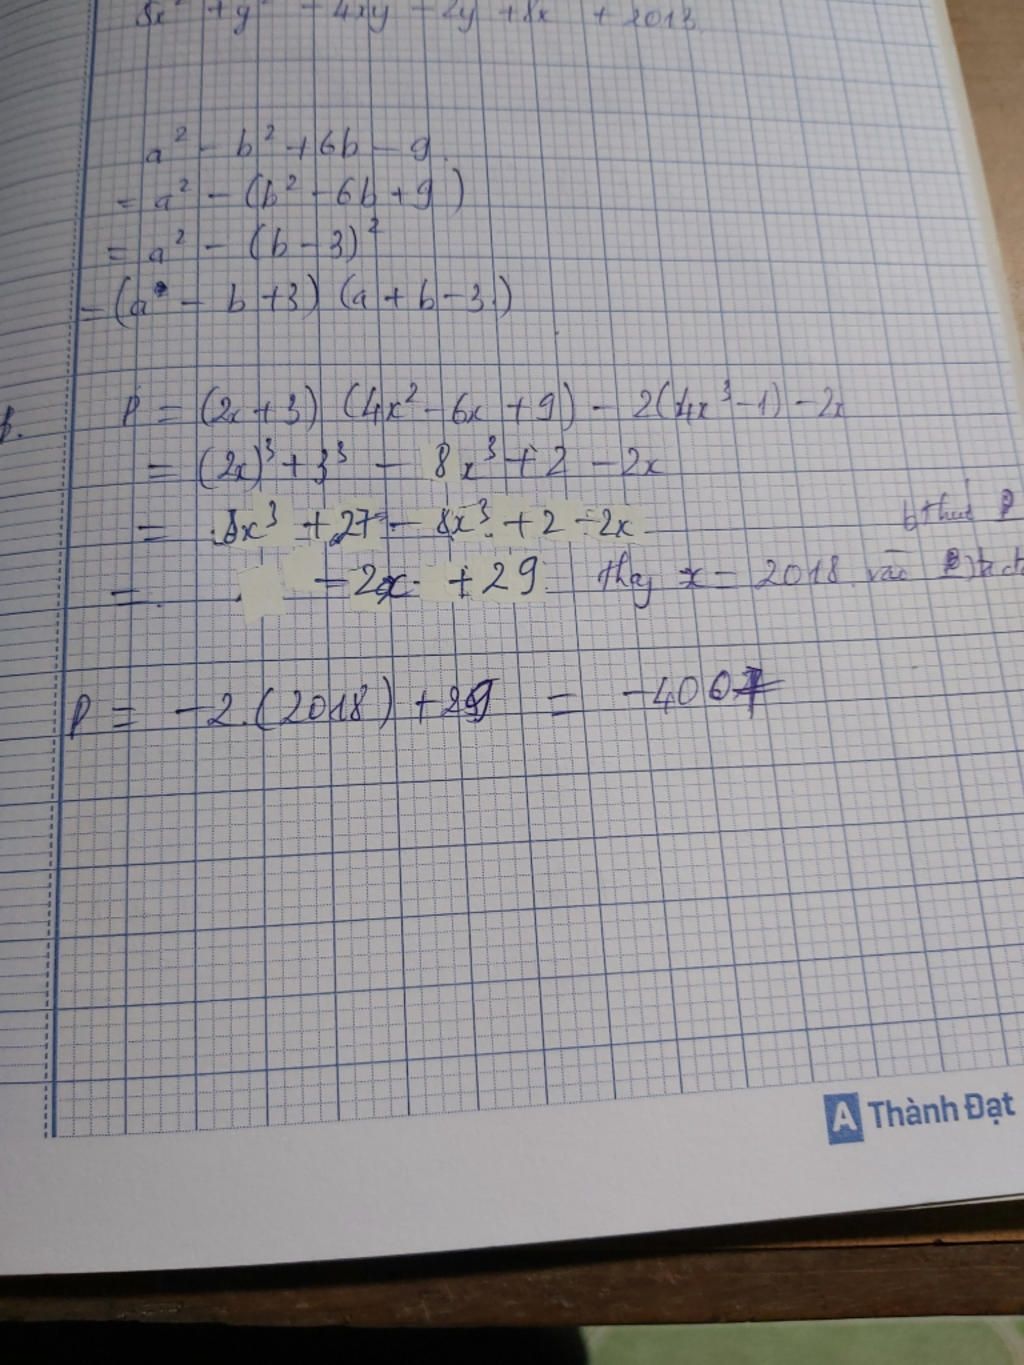 5x² + y² - 4xy - 2y + 8x + 2018
a² - b² + 6b - 9
= a² - (b² - 6b + 9)
= a² - (b - 3)²
= (a - b + 3) (a + b - 3)
P = (2x + 3) (4x² - 6x + 9) - 2(4x³ - 1) - 2x
= (2x)³ + 3³ - 8x³ + 2 - 2x
= 8x³ + 27 - 8x³ + 2 - 2x
bthức P
= - 2x + 29 Thay x = 2018 vào
P = - 2.(2018) + 29 = - 4007
A Thành Đạt